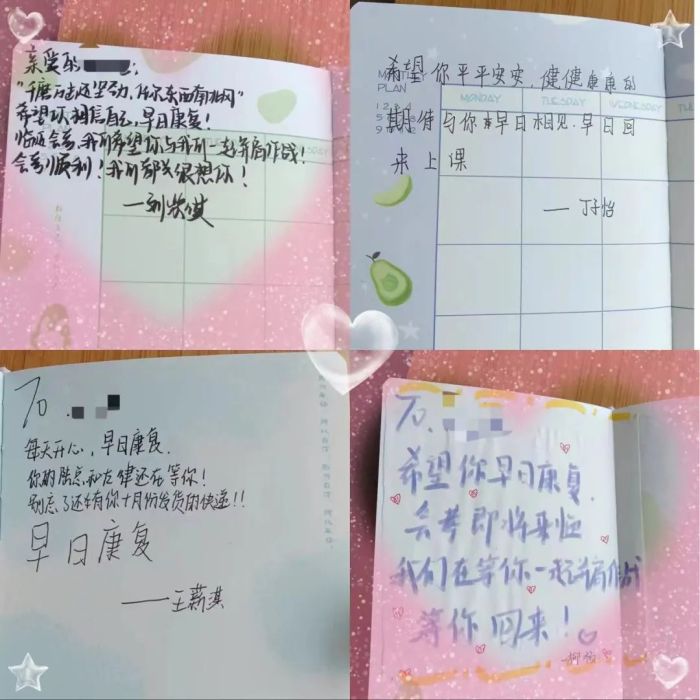 亲爱的
"千磨万击还坚劲,任尔东西南北风"
希望你相信自己,早日康复!
临近会考,我们希望你与我们一起并肩作战!
会考顺利!我们都很想你!
希望你平平安安,健健康康的
PLAN
MONDAY
TUESDAY
WEDNESDAY
期待与你早日相见.早日回
来上课
——丁子怡
To.
每天开心,早日康复.
你的陆总和左律还在等你!
别忘了还有你十月份发货的快递!!
早日康复
——王薪淇
To.
希望你早日康复.
会考即将来临
我们在等你一起并肩作战
等你回来!